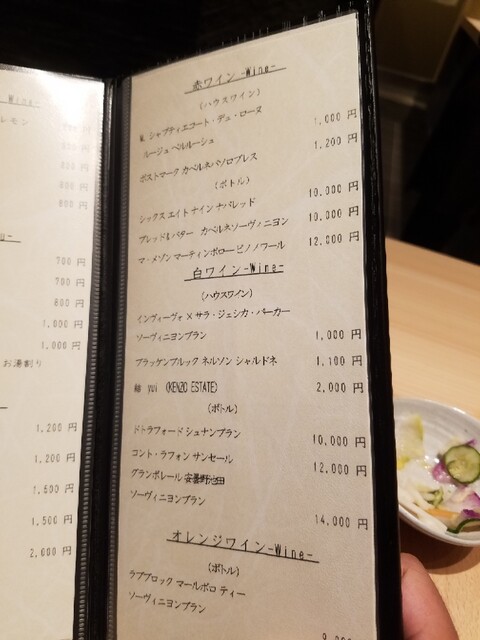 Wine-
レモン
700 円
800 円
600 円
600 円
700 円
700 円
800 円
1,000 円
1,000 円
お湯割り
1,200 円
1,200 円
1,500 円
1,500 円
2,000 円
赤ワイン -Wine-
(ハウスワイン)
M. シャプティエコート・デュ・ローヌ
ルージュ ベルルーシュ 1,000 円
ポストマーク カベルネパソロブレス 1,200 円
(ボトル)
シックス エイト ナイン ナパレッド 10,000 円
ブレッド&バター カベルネソーヴィニヨン 10,000 円
マ・メゾン マーティンボロー ピノノワール 12,000 円
白ワイン-Wine-
(ハウスワイン)
インヴィーヴォ × サラ・ジェシカ・パーカー
ソーヴィニヨンブラン 1,000 円
ブラッケンブルック ネルソン シャルドネ 1,100 円
yui (KENZO ESTATE) 2,000 円
(ボトル)
ドトラフォード シュナンブラン 10,000 円
コント・ラフォン サンセール 12,000 円
グランポレール 安曇野池田
ソーヴィニヨンブラン 14,000 円
オレンジワイン-Wine-
(ボトル)
ラブブロック マールボロ ティー
ソーヴィニヨンブラン